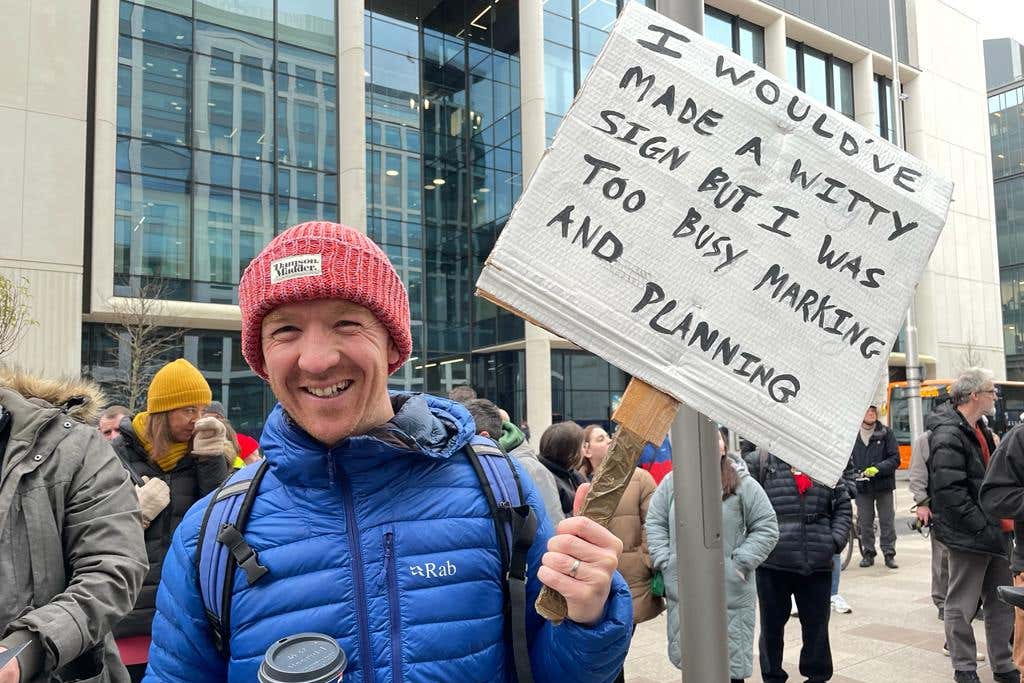 I WOULD'VE
MADE A WITTY
SIGN BUT I WAS
TOO BUSY MARKING
AND PLANNING
Damson
Madder.
Rab